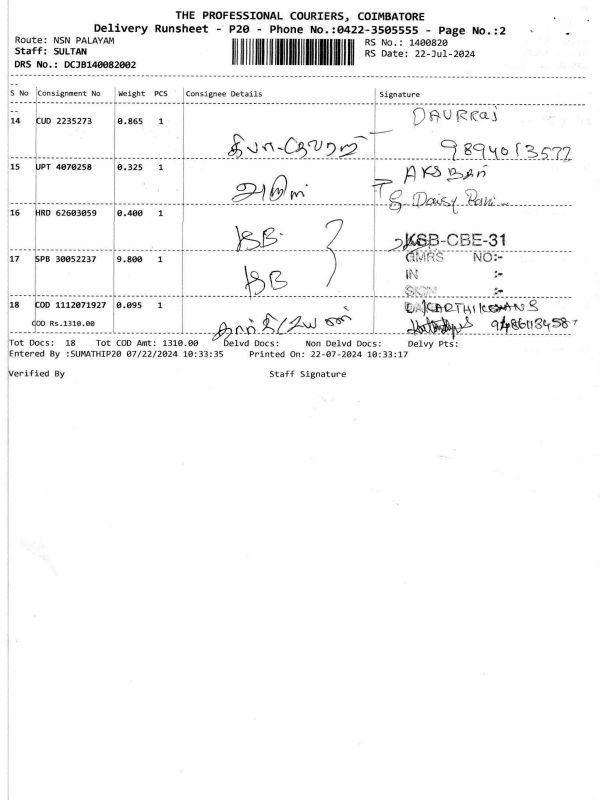 THE PROFESSIONAL COURIERS, COIMBATORE
Delivery Runsheet - P20 - Phone No.:0422-3505555 - Page No.:2
Route: NSN PALAYAM RS No.: 1400820
Staff: SULTAN RS Date: 22-Jul-2024
DRS No.: DCJB140082002
S No Consignment No Weight PCS Consignee Details Signature
14 CUD 2235273 0.865 1 DAVRRaj
9894013577
15 UPT 4070258 0.325 1
Daisy Rani
16 HRD 62603059 0.400 1 KSB. KSB-CBE-31
GMRS NO:-
17 SPB 30052237 9.800 1 KSB IN :-
SIGN :-
18 COD 1112071927 0.095 1
COD Rs.1310.00
Tot Docs: 18 Tot COD Amt: 1310.00 Delvd Docs: Non Delvd Docs: Delvy Pts:
Entered By :SUMATHIP20 07/22/2024 10:33:35 Printed On: 22-07-2024 10:33:17
Verified By Staff Signature